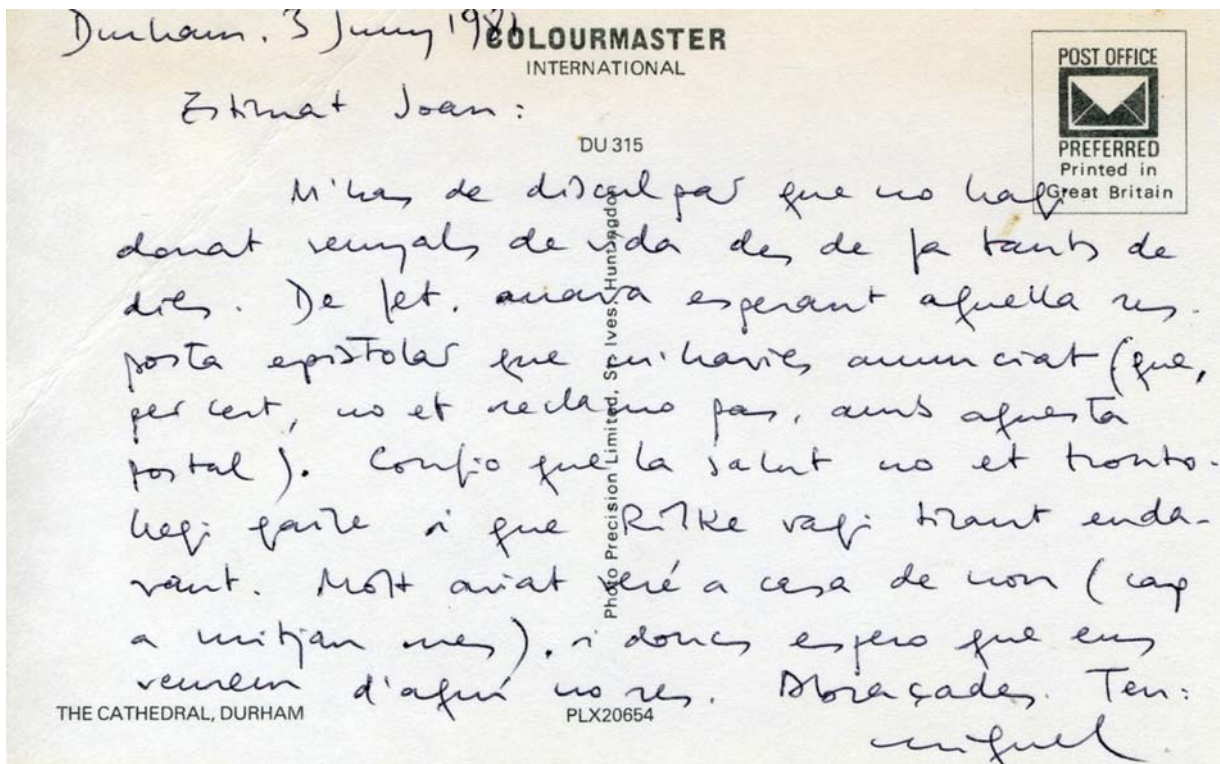 Durham, 3 Juny 198
COLOURMASTER
INTERNATIONAL
POST OFFICE
PREFERRED
Printed in
Great Britain
Estimat Joan:
DU 315
M'has de disculpar que no hagi
donat senyals de vida des de fa tants de
dies. De fet, anava esperant aquella res-
posta epistolar que m'havies anunciat (que,
per cert, no et reclamo pas, amb aquesta
postal). Confio que la salut no et tronto-
llegi gaire i que Rilke vagi tirant enda-
vant. Molt aviat seré a casa de nou (cap
a mitjan mes), i doncs espero que ens
veurem d'aquí no res. Abraçades. Teu:
miquel
Photo Precision Limited, St. Ives, Huntingdon
THE CATHEDRAL, DURHAM
PLX20654